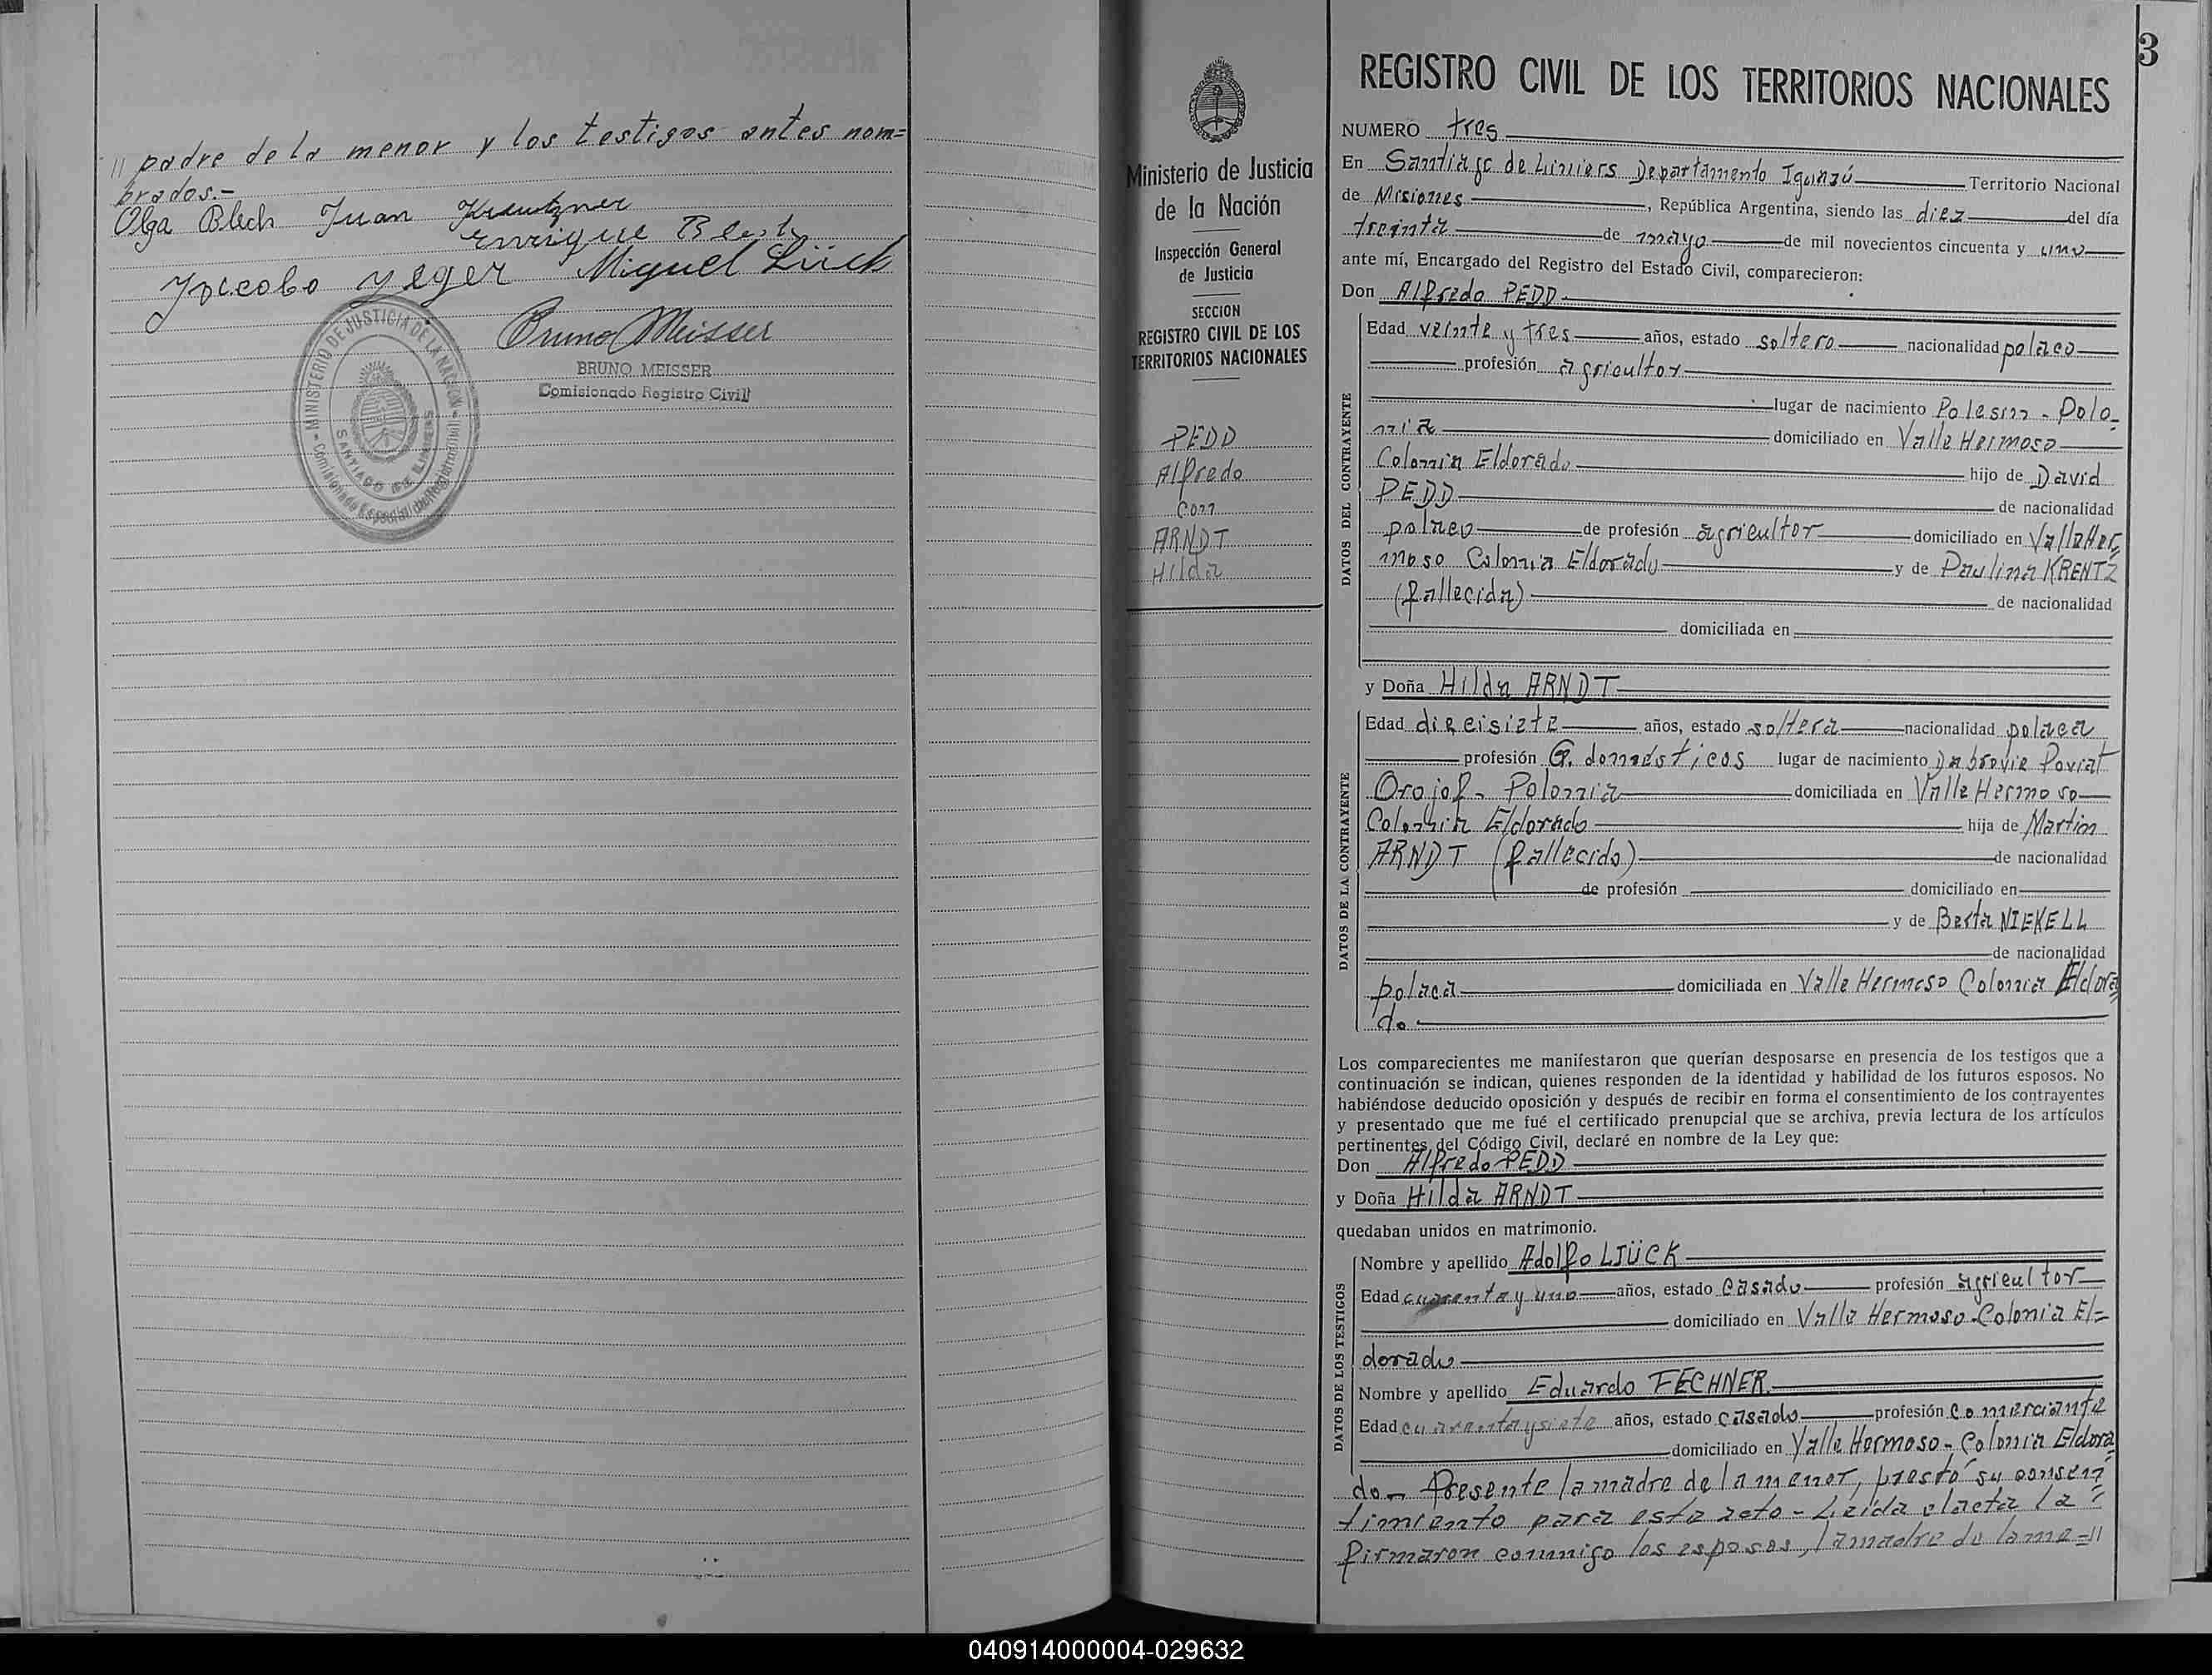 // padre de la menor y los testigos antes nom=
brados.-
Olga Blech Juan Kreutzner
Enrique Blech
Jaccobo Yeger Miguel Lück
Bruno Meisser
BRUNO MEISSER
Comisionado Registro Civil
MINISTERIO DE JUSTICIA DE LA NACION
SANTIAGO DE LINIERS
Ministerio de Justicia
de la Nación
Inspección General
de Justicia
SECCION
REGISTRO CIVIL DE LOS
TERRITORIOS NACIONALES
PEDD
Alfredo
con
ARNDT
Hilda
3
REGISTRO CIVIL DE LOS TERRITORIOS NACIONALES
NUMERO tres
En Santiago de Liniers Departamento Iguazú Territorio Nacional
de Misiones, República Argentina, siendo las diez del día
treinta de mayo de mil novecientos cincuenta y uno
ante mí, Encargado del Registro del Estado Civil, comparecieron:
Don Alfredo PEDD
DATOS DEL CONTRAYENTE
Edad veinte y tres años, estado soltero nacionalidad polaco
profesión agricultor
lugar de nacimiento Polesin - Polo=
nia domiciliado en Valle Hermoso
Colonia Eldorado hijo de David
PEDD de nacionalidad
polaco de profesión agricultor domiciliado en Valle Her=
moso Colonia Eldorado y de Paulina KRENTZ
(fallecida) de nacionalidad
domiciliada en
y Doña Hilda ARNDT
DATOS DE LA CONTRAYENTE
Edad diecisiete años, estado soltera nacionalidad polaca
profesión Q. domésticos lugar de nacimiento Dabrovie Poviat
Orojof - Polonia domiciliada en Valle Hermoso
Colonia Eldorado hija de Martin
ARNDT (fallecido) de nacionalidad
de profesión domiciliado en
y de Berta NIEKELL
de nacionalidad
polaca domiciliada en Valle Hermoso Colonia Eldora=
do
Los comparecientes me manifestaron que querían desposarse en presencia de los testigos que a
continuación se indican, quienes responden de la identidad y habilidad de los futuros esposos. No
habiéndose deducido oposición y después de recibir en forma el consentimiento de los contrayentes
y presentado que me fué el certificado prenupcial que se archiva, previa lectura de los artículos
pertinentes del Código Civil, declaré en nombre de la Ley que:
Don Alfredo PEDD
y Doña Hilda ARNDT
quedaban unidos en matrimonio.
DATOS DE LOS TESTIGOS
Nombre y apellido Adolfo LJÜCK
Edad cuarenta y uno años, estado casado profesión agricultor
domiciliado en Valle Hermoso - Colonia El=
dorado
Nombre y apellido Eduardo FECHNER
Edad cuarenta y siete años, estado casado profesión comerciante
domiciliado en Valle Hermoso - Colonia Eldora=
do - Presente la madre de la menor, prestó su consen=
timiento para este acto - Leida el acta la
firmaron conmigo los esposos, la madre de la me=//
040914000004-029632